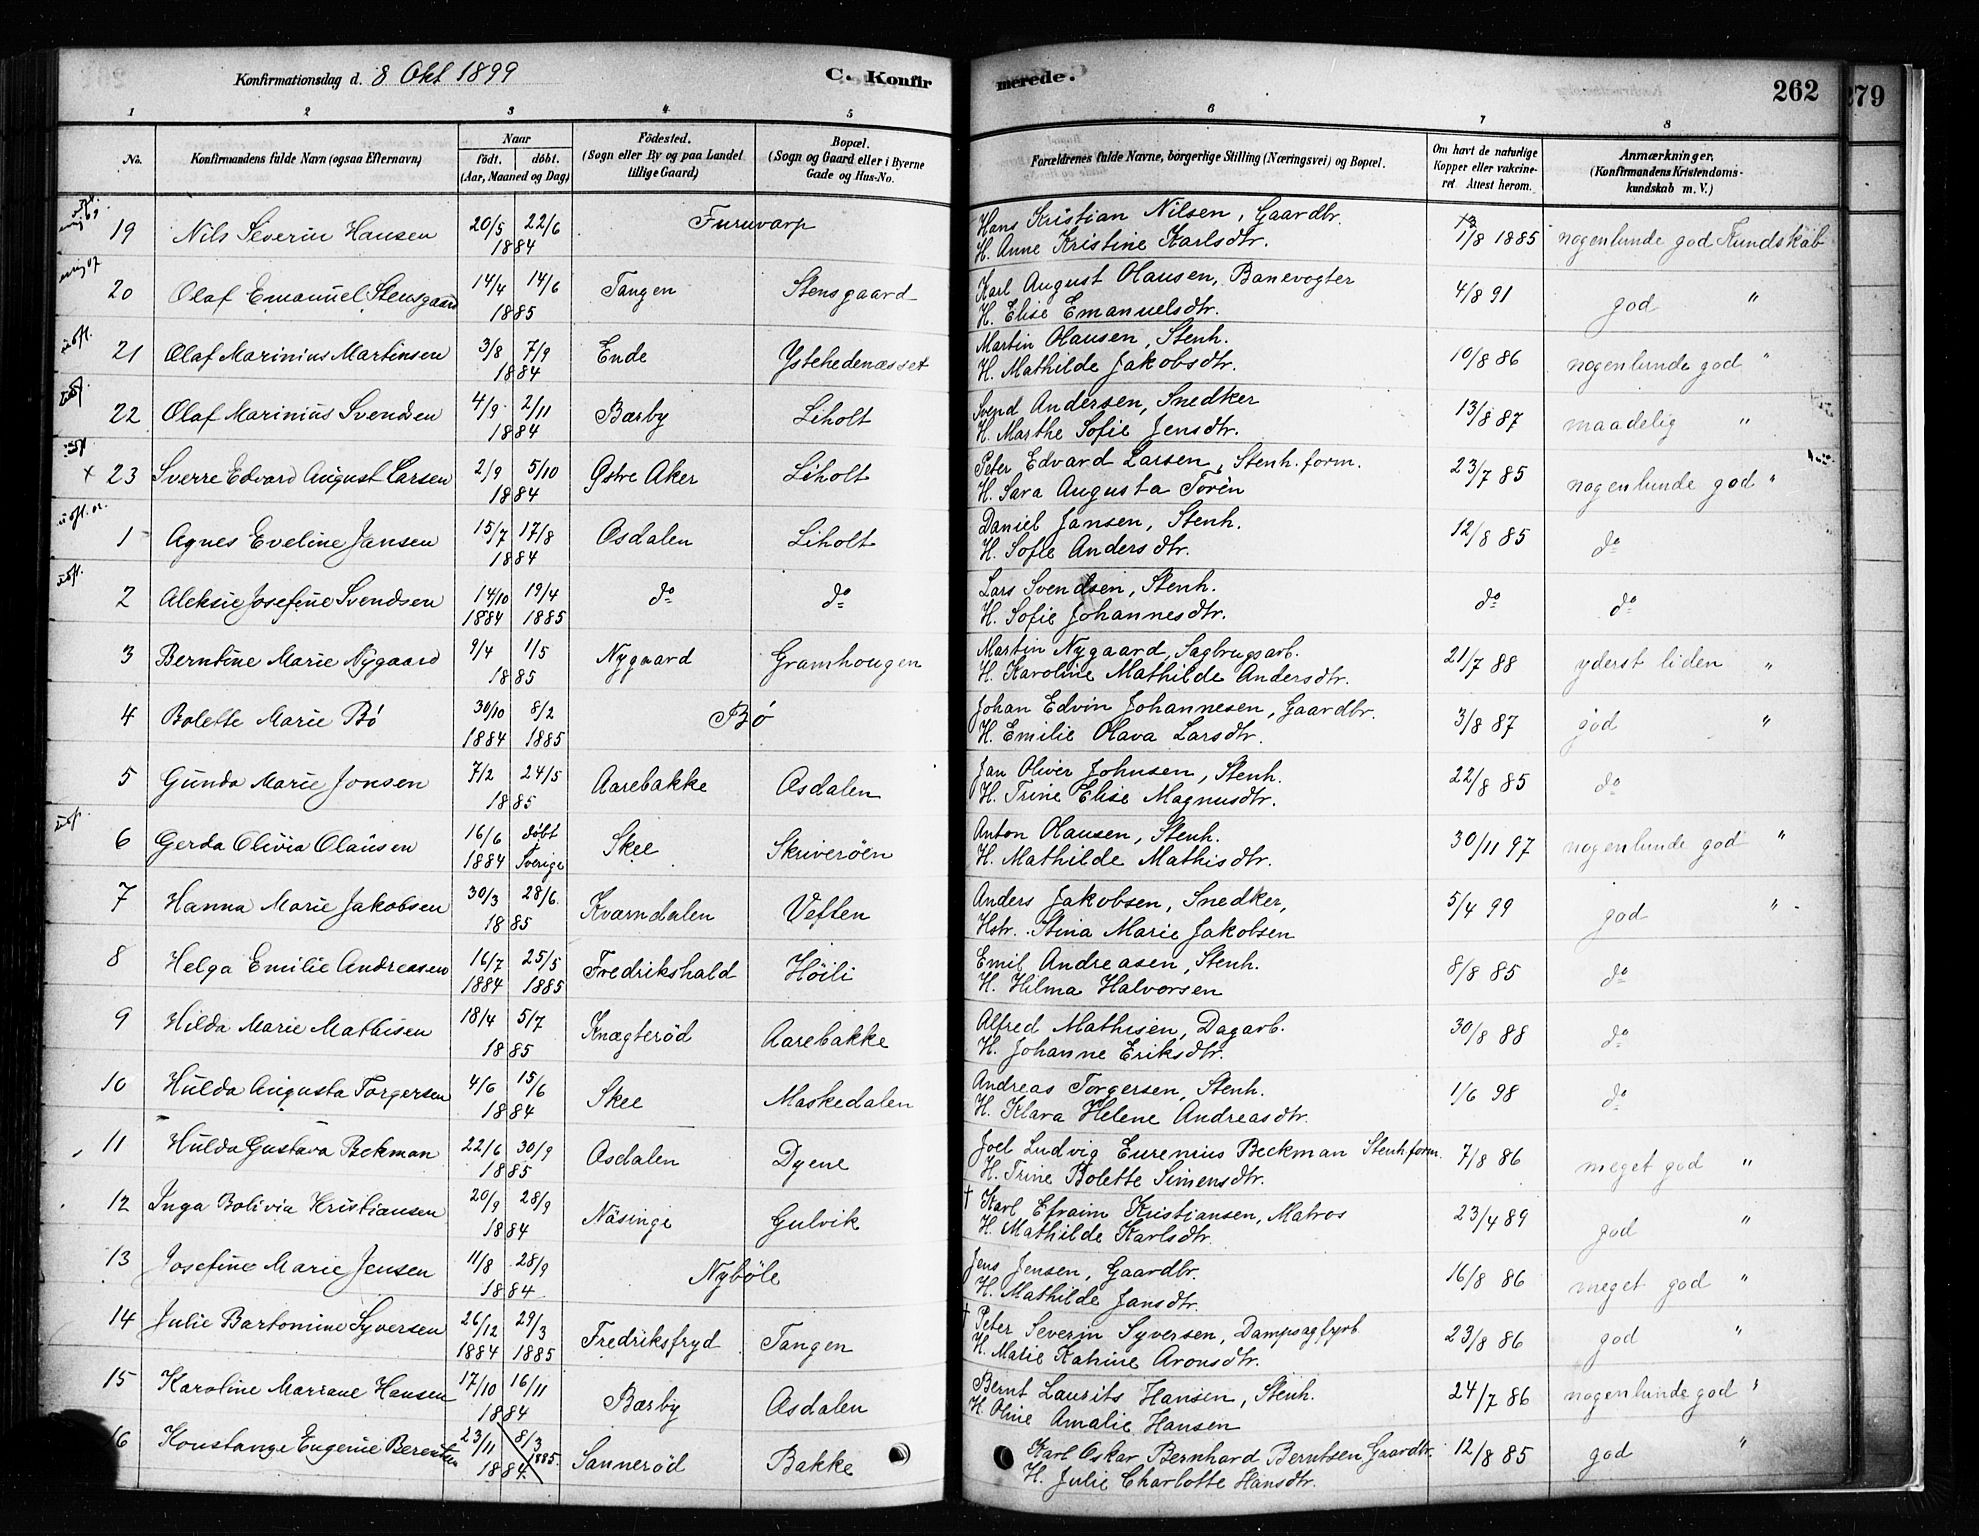 Konfirmationsdag d. 8 Okt 1899 C. Konfirmerede. 262 279
1 2 3 4 5 6 7 8
No. Konfirmandens fulde Navn (ogsaa Efternavn) Naar født. døbt. (Aar, Maaned og Dag) Födested. (Sogn eller By og paa Landet tillige Gaard) Bopæl. (Sogn og Gaard eller i Byerne Gade og Hus-No. Forældrenes fulde Navne, borgerlige Stilling (Næringsvei) og Bopæl. Om havt de naturlige Kopper eller vakcineret. Attest herom. Anmærkninger. (Konfirmandens Kristendomskundskab m. V.)
19 Nils Severin Hansen 20/5 22/6 1884 Furuvarp Hans Kristian Nilsen, Gaardbr. 1/8 1885 nogenlunde god Kundskab
H. Anne Kristine Karlsdtr.
20 Olaf Emanuel Stensgaard 14/4 14/6 1885 Tangen Stensgaard Karl August Olausen, Banevogter 4/8 91 god "
H. Elise Emanuelsdtr.
21 Olaf Marinius Martinsen 3/8 7/9 1884 Ende Ystehedenæsset Martin Olausen, Stenh. 10/8 86 nogenlunde god "
H. Mathilde Jakobsdtr.
22 Olaf Marinius Svendsen 4/9 2/11 1884 Bærby Liholt Svend Andersen, Snedker 13/8 87 maadelig "
H. Marthe Sofie Jensdtr.
+ 23 Sverre Edvard August Larsen 2/9 5/10 1884 Østre Aker Liholt Peter Edvard Larsen, Stenh. form. 23/7 85 nogenlunde god "
H. Sara Augusta Torén
1 Agnes Eveline Jansen 15/7 17/8 1884 Asdalen Liholt Daniel Jansen, Stenh. 12/8 85 do
H. Sofie Andersdtr.
2 Aleksie Josefine Svendsen 14/10 1884 19/4 1885 do do Lars Svendsen, Stenh. do do
H. Sofie Johannesdtr.
3 Berntine Marie Nygaard 9/4 1/5 1885 Nygaard Gramhougen Martin Nygaard, Sagbrugsarb. 21/7 88 yderst liden "
H. Karoline Mathilde Andersdtr.
4 Bolette Marie Bö 30/10 1884 8/2 1885 Bö Johan Edvin Johannesen, Gaardbr. 3/8 87 god "
H. Emilie Olava Larsdtr.
5 Gunda Marie Jonsen 7/2 24/5 1885 Aarebakke Asdalen Jan Oliver Johnsen, Stenh. 22/8 85 do
H. Trine Elise Magnusdtr.
6 Gerda Olivia Olausen 16/6 1884 døbt i Sverige Skee Skriveröen Anton Olausen, Stenh. 30/11 97 nogenlunde god "
H. Mathilde Mathisdtr.
7 Hanna Marie Jakobsen 30/3 28/6 1885 Kværndalen Veften Anders Jakobsen, Snedker, 5/4 99 god "
Hstr. Stina Marie Jakobsen
8 Helga Emilie Andreasen 16/7 1884 25/5 1885 Fredrikshald Höili Emil Andreasen, Stenh. 8/8 85 do
H. Hilma Halvorsen
9 Hilda Marie Mathisen 18/4 5/7 1885 Knægteröd Aarebakke Alfred Mathisen, Dagarb. 30/8 88 do
H. Johanne Eriksdtr.
10 Hulda Augusta Torgersen 4/6 15/6 1884 Skee Maskedalen Andreas Torgersen, Stenh. 1/6 98 do
H. Klara Helene Andreasdtr.
11 Hulda Gustava Bekman 22/6 30/9 1885 Asdalen Dyene Joel Ludvig Eurenius Beckman Stenh form. 7/8 86 meget god "
H. Trine Bolette Simensdtr.
12 Inga Bolivia Kristiansen 20/9 28/9 1884 Näsinge Gulvik † Karl Efraim Kristiansen, Matros 23/4 89 god "
H. Mathilde Karlsdtr.
13 Josefine Marie Jensen 11/8 28/9 1884 Nyböle Jens Jensen, Gaardbr. 16/8 86 meget god "
H. Mathilde Jansdtr.
14 Julie Bartomine Syversen 26/12 1884 29/3 1885 Fredriksfryd Tangen † Peter Severin Syversen, Dampsagfyrb. 23/8 86 god "
H. Matie Katrine Aronsdtr.
15 Karoline Mariane Hansen 17/10 16/11 1884 Bærby Asdalen Bernt Laurits Hansen, Stenh. 24/7 86 nogenlunde god "
H. Oline Amalie Hansen
16 Konstange Eugenie Berentsen 23/11 1884 8/3 1885. Sanneröd Bakke Karl Oskar Bernhard Berntsen, Gaardbr. 12/8 85 god "
H. Julie Charlotte Hansdtr.